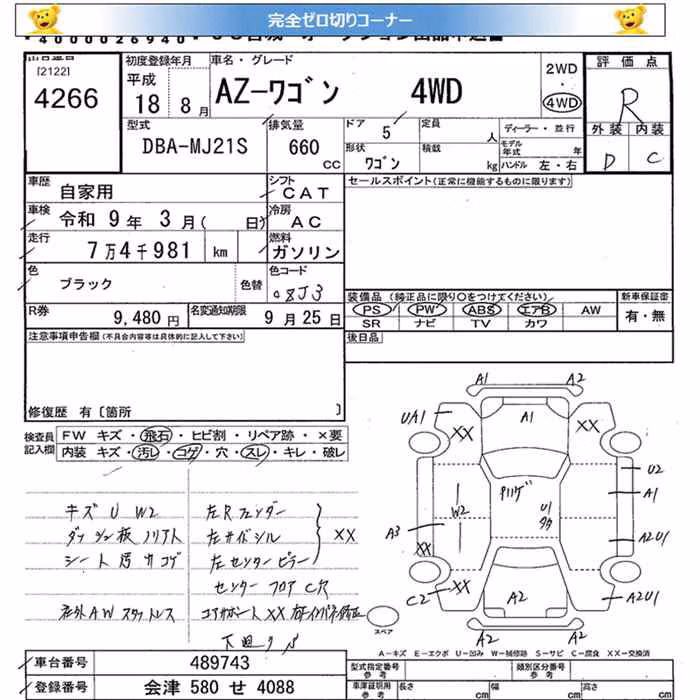 完全ゼロ切りコーナー
出品番号
[2122]
4266
初度登録年月
平成
18年8月
車名・グレード
AZ-ワゴン 4WD
2WD
・
4WD
評価点
R
外装 内装
D C
型式
DBA-MJ21S
排気量
660
CC
ドア
5
定員
人
形状
ワゴン
積載
kg
ディーラー・並行
モデル年式 年
ハンドル 左・右
車歴
自家用
シフト
CAT
車検
令和 9年 3月( 日)
冷房
AC
走行
7万4千981 km
燃料
ガソリン
色
ブラック
色替
色コード
08J3
R券
9,480円
名変通知期限
9月25日
セールスポイント(正常に機能するものに限ります)
装備品 (純正品に限り○をつけてください)
PS PW ABS エアB AW
SR ナビ TV カワ
新車保証書
有・無
後日品
注意事項申告欄(不具合内容等は具体的に記入して下さい)
修復歴 有〔箇所 〕
検査員記入欄
FW キズ・飛石・ヒビ割・リペア跡・×要
内装 キズ・汚レ・コゲ・穴・スレ・キレ・破レ
キズ U W2
ダッシュ板ノリアト
シート汚れコゲ
社外AWスタットレス
左Rフェンダー
左サイドシル
左センターピラー
XX
センターフロアC穴
コアサポートXX
下廻りS
A1 A2
UA1 XX A1 XX
U2
A1
W2
U1
A3
XX
A2U1
C2 XX A2 A2U1
A2 A2
スペア
A-キズ E-エクボ U-凹み W-補修跡 S-サビ C-腐食 XX-交換済
車台番号
489743
登録番号
会津 580 せ 4088
型式指定番号
参考
類別区分番号
参考
車庫証明用
参考
長さ cm
幅 cm
高さ cm